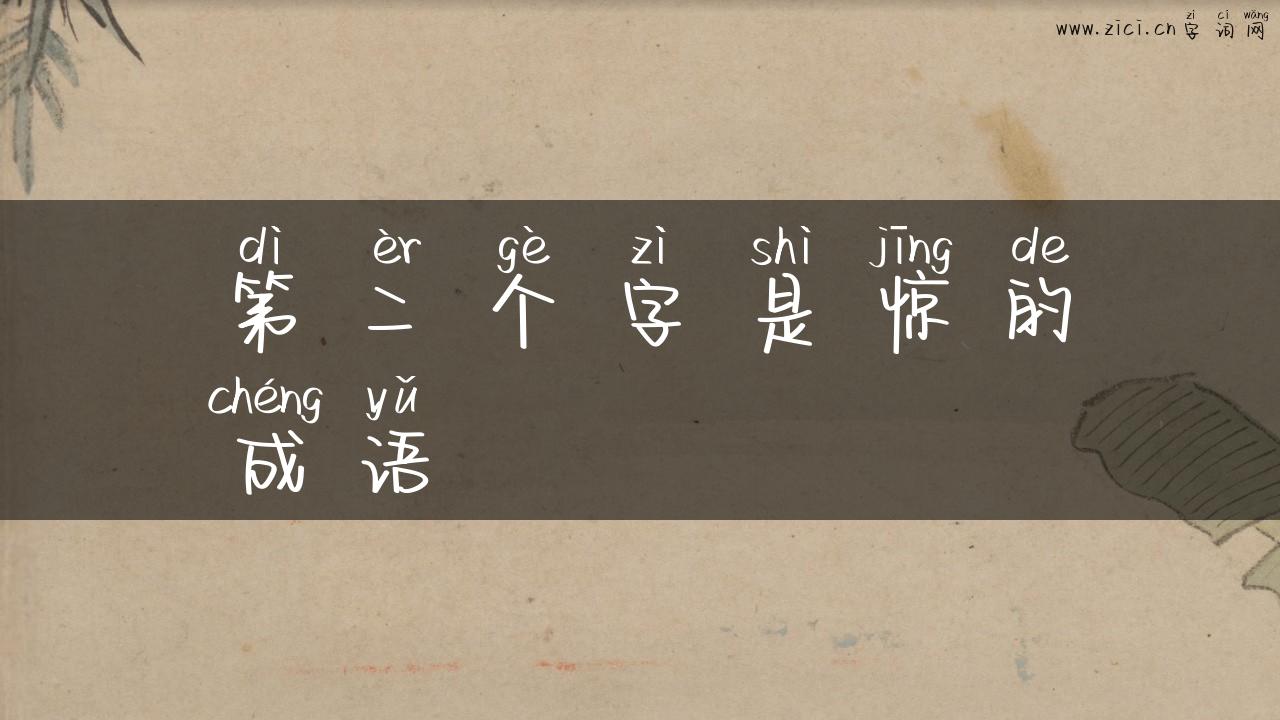 zì cí wǎng
www.zici.cn 字词网
dì èr gè zì shì jīng de
第二个字是惊的
chéng yǔ
成语